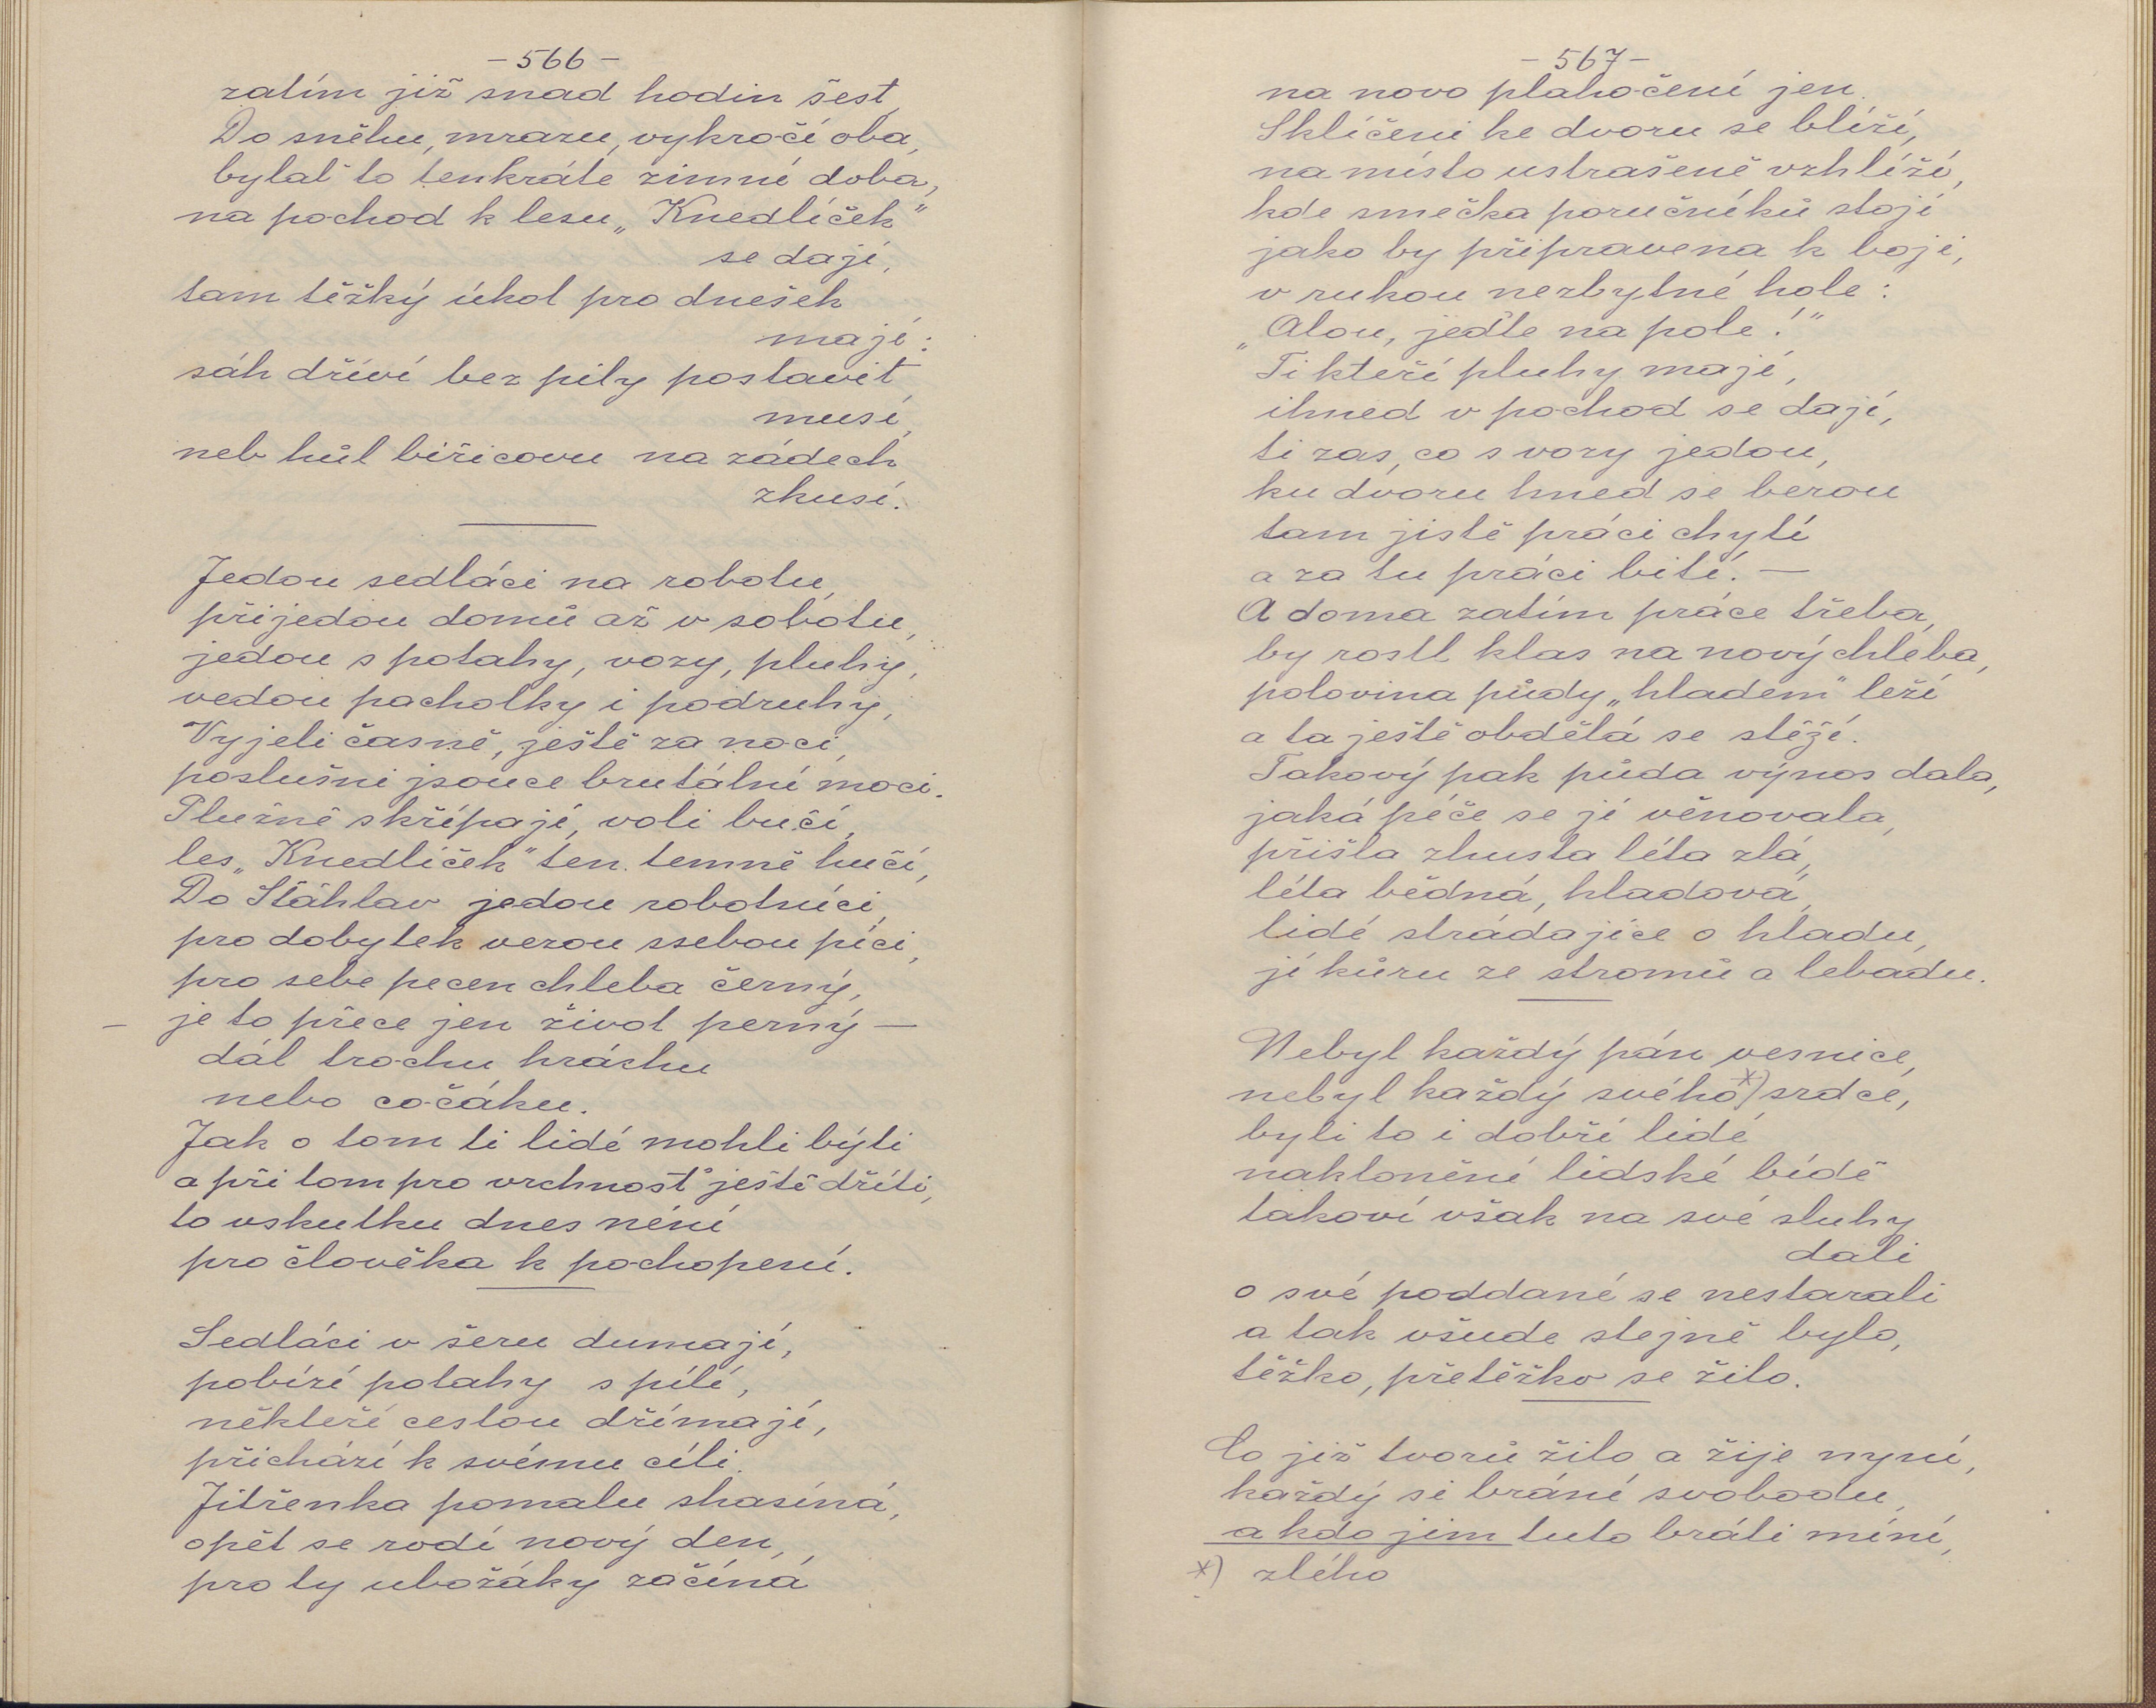 – 566 –
zatím již snad hodin šest,
Do sněhu, mrazu, vykročí oba,
bylať to tenkráte zimní doba,
na pochod k lesu „Knedlíček"
se dají,
tam těžký úkol pro dnešek
mají:
sáh dříví bez pily postavit
musí,
neb hůl biřicovu na zádech
zkusí.
Jedou sedláci na robotu,
přijedou domů až v sobotu,
jedou s potahy, vozy, pluhy,
vedou pacholky i podruhy,
Vyjeli časně, ještě za noci,
poslušni jsouce brutální moci.
Plužně skřípají, voli bučí,
les „Knedlíček" ten temně hučí,
Do Šťáhlav jedou robotníci,
pro dobytek vezou ssebou píci,
pro sebe pecen chleba černý,
– je to přece jen život perný –
dál trochu hráchu
nebo čočáku.
Jak o tom ti lidé mohli býti
a při tom pro vrchnosť ještě dříti,
to vskutku dnes není
pro člověka k pochopení.
Sedláci v šeru dumají,
pobízí potahy s pílí,
někteří cestou dřímají,
přichází k svému cíli.
Jitřenka pomalu shasíná,
opět se rodí nový den,
pro ty ubožáky začíná
– 567 –
na novo plahočení jen.
Sklíčeni ke dvoru se blíží,
na místo ustrašeně vzhlíží,
kde smečka poručníků stojí
jako by připravena k boji,
v rukou nezbytné hole:
„Alou, jeďte na pole!"
Ti kteří pluhy mají,
ihned v pochod se dají,
ti zas, co s vozy jedou,
ku dvoru hned se berou
tam jistě práci chytí
a za tu práci bití. –
A doma zatím práce třeba,
by rostl klas na nový chléba,
polovina půdy „hladem" leží
a ta ještě obdělá se stěží.
Takový pak půda výnos dala,
jaká péče se jí věnovala,
přišla zhusta léta zlá,
léta bědná, hladová,
lidé strádajíce o hladu,
jí kůru ze stromů a lebadu.
Nebyl každý pán vesnice,
nebyl každý svého*) srdce,
byli to i dobří lidé
nakloněni lidské bídě
takoví však na své sluhy
dali
o své poddané se nestarali
a tak všude stejně bylo,
těžko, přetěžko se žilo.
Co již tvorů žilo a žije nyní,
každý si brání svobodu,
a kdo jim tuto bráti míní,
*) zlého